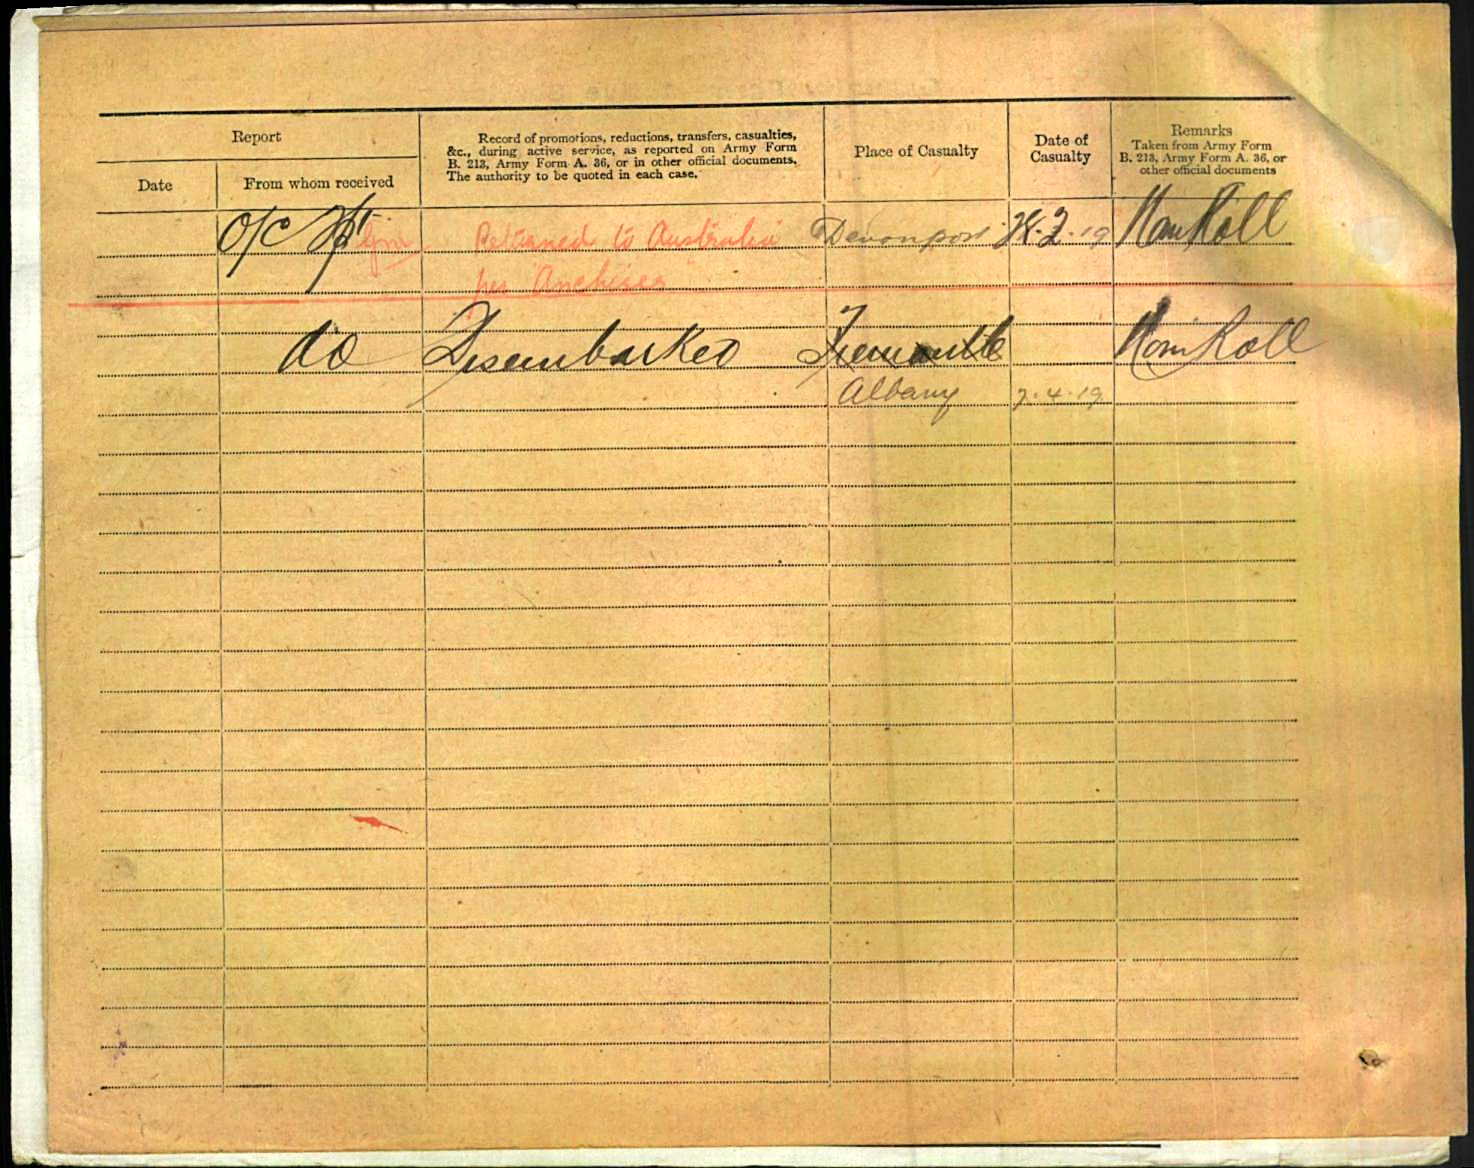 Report
Record of promotions, reductions, transfers, casualties,
&c., during active service, as reported on Army Form
B. 213, Army Form A. 36, or in other official documents.
The authority to be quoted in each case.
Place of Casualty
Date of
Casualty
Remarks
Taken from Army Form
B. 213, Army Form A. 36, or
other official documents
Date
From whom received
O/C Returned to Australia Devonport 2.19 Nom Roll
per Anchises
do Disembarked Fremantle Nom Roll
Albany 2.4.19